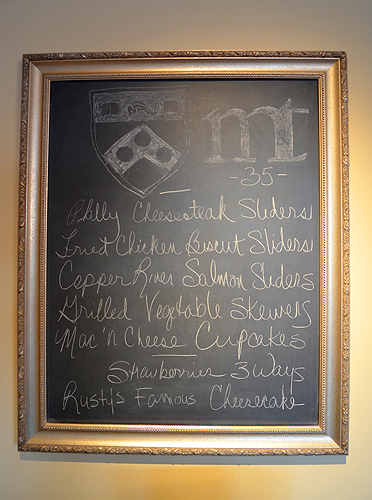 mt
-35-
Philly Cheesesteak Sliders
Fried Chicken Biscuit Sliders
Copper River Salmon Sliders
Grilled Vegetable Skewers
Mac 'n Cheese Cupcakes
Strawberries 3 Ways
Rusty's Famous Cheesecake